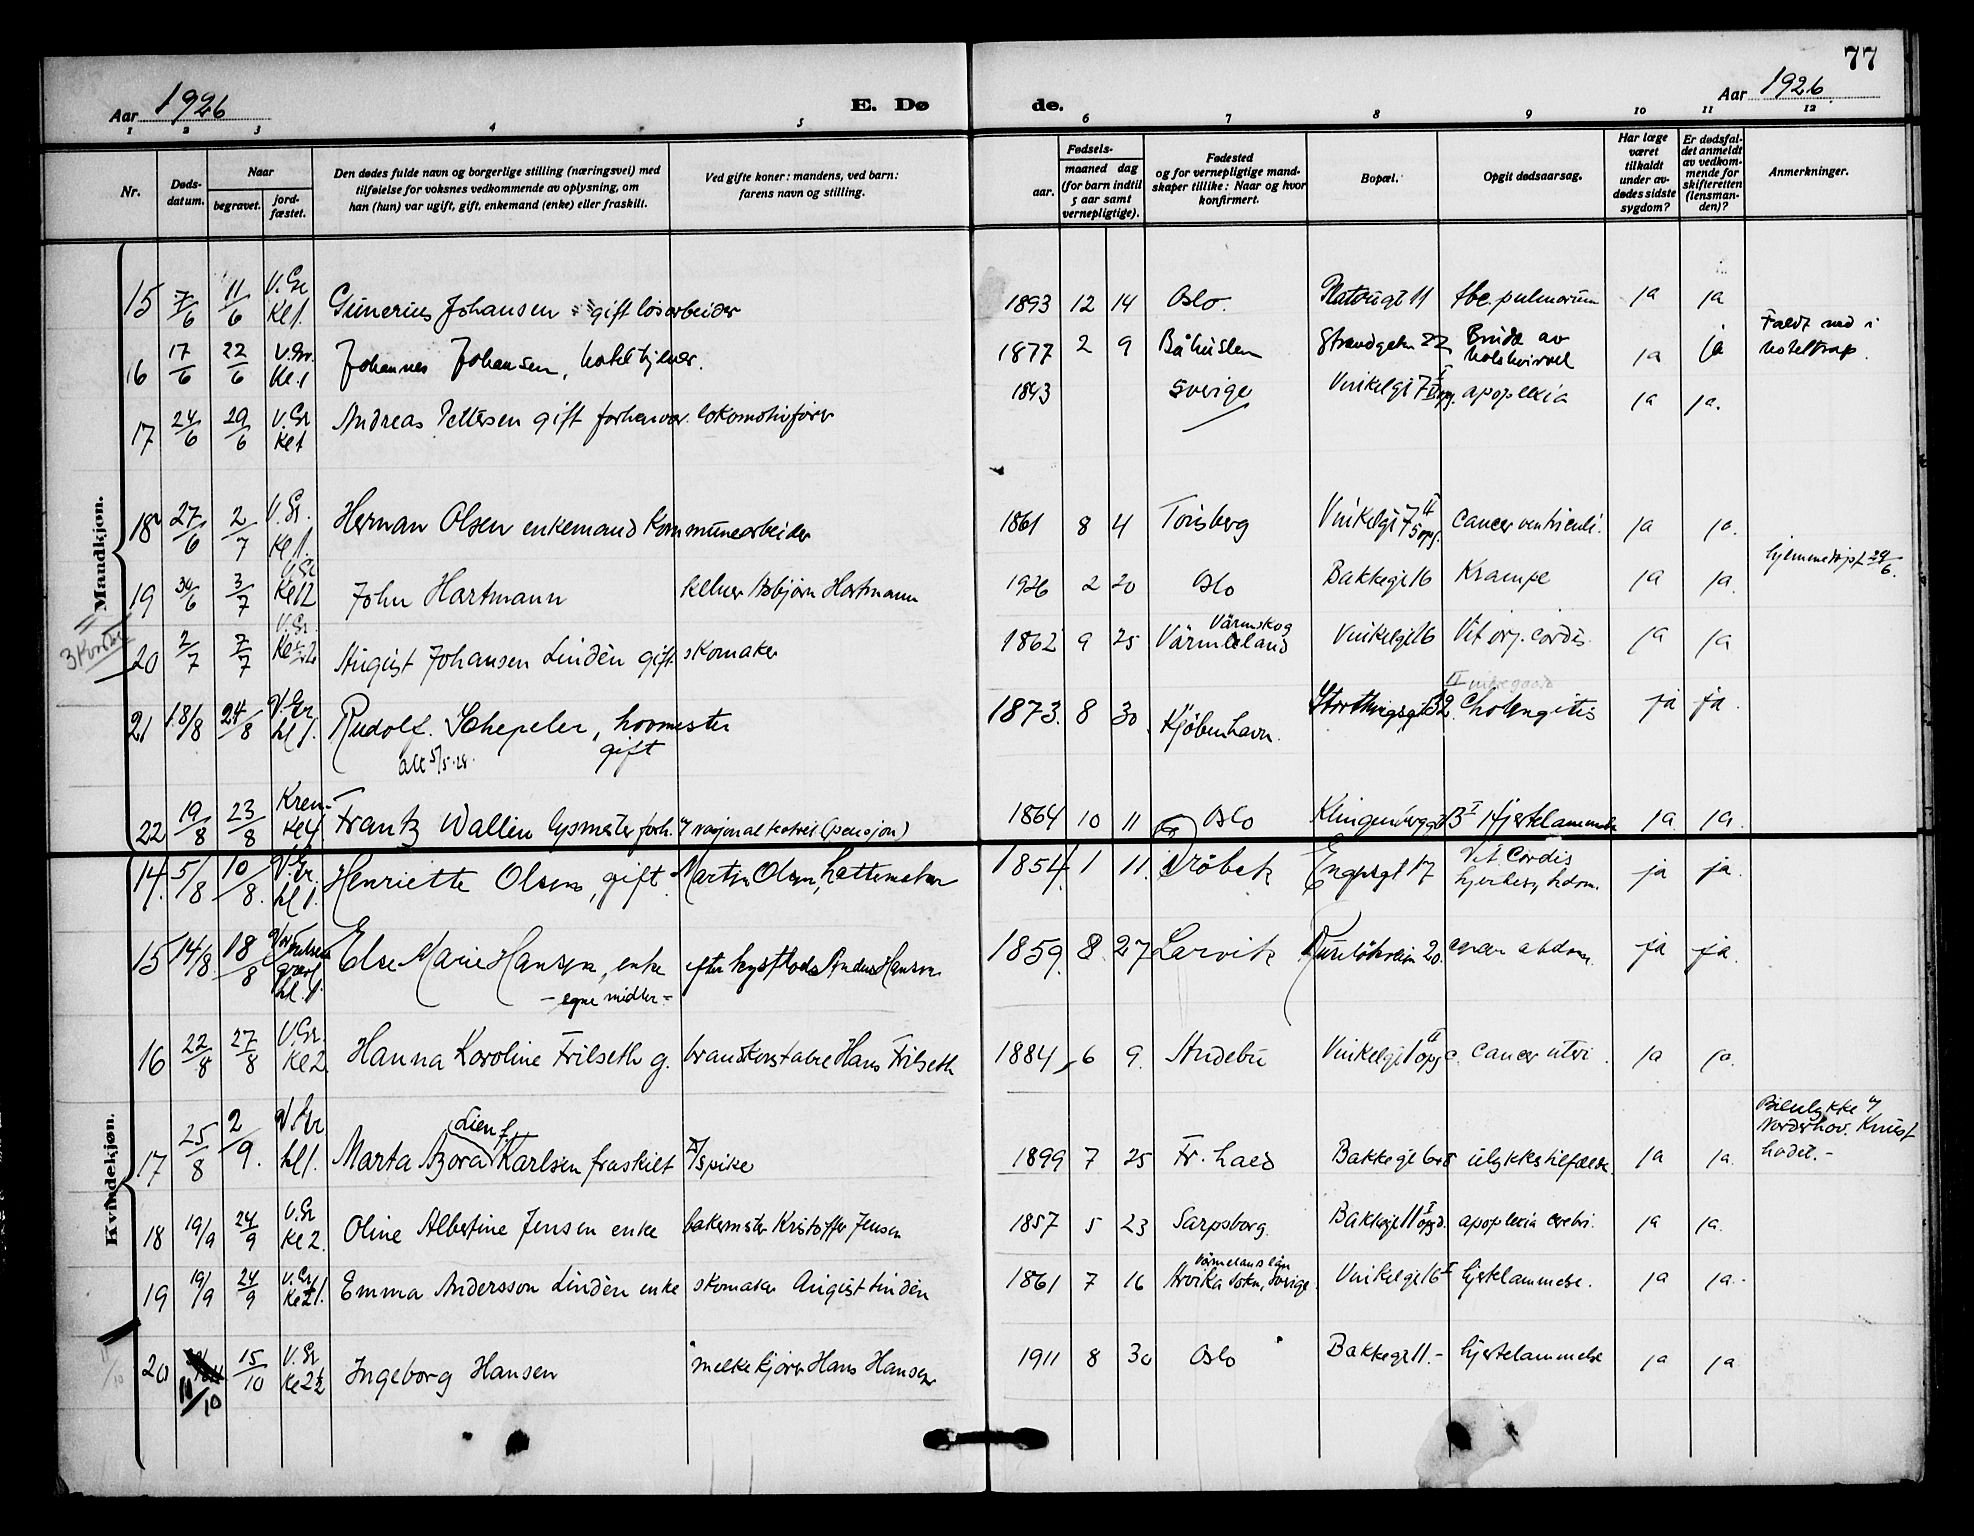 77
Aar 1926
E. Dø
de.
Aar 1926
1 2 3 4 5 6 7 8 9 10 11 12
Nr.
Døds-
datum.
Naar
begravet.
jord-
fæstet.
Den dødes fulde navn og borgerlige stilling (næringsvei) med
tilføielse for voksnes vedkommende av oplysning, om
han (hun) var ugift, gift, enkemand (enke) eller fraskilt.
Ved gifte koner: mandens, ved barn:
farens navn og stilling.
Fødsels-
aar.
maaned dag
(for barn indtil
5 aar samt
vernepligtige).
Fødested
og for vernepligtige mand-
skaper tillike: Naar og hvor
konfirmert.
Bopæl.
Opgit dødsaarsag.
Har læge
været
tilkaldt
under av-
dødes sidste
sygdom?
Er dødsfal-
det anmeldt
av vedkom-
mende for
skifteretten
(lensman-
den)?
Anmerkninger.
Mandkjøn.
15 7/6 11/6 V. Gr Kl 1. Gunerius Johansen gift løsarbeider 1893 12 14 Oslo. 11 tbc. pulmonum ja ja
16 17/6 22/6 V. Gr. Kl. 1 Johannes Johansen, 1877 2 9 Båhuslen Strandgaten 22 Brudd av halshvirvel ja ja Faldt ned i hoteltrap.
17 24/6 29/6 V. Gr Kl 1 Andreas Pettersen gift forhenvær. lokomotivfører 1843 Sverige Vinkelgt 7 apoplexia ja ja.
18 27/6 2/7 V. Gr. Kl 1. Herman Olsen enkemand Kommunearbeider 1861 8 4 Tønsberg Vinkelgt 7 II opg. cancer ventriculi. ja ja.
19 30/6 3/7 V. Gr Kl 12 John Hartmann kelner Asbjørn Hartmann 1926 2 20 Oslo Bakkegt 16 Krampe ja ja. hjemmedøpt 29/6.
20 2/7 7/7 V. Gr. August Johansen Lindèn gift skomaker 1862 9 25 Värmskog Värmland Vinkelgt 16 Vit. org. cordis ja ja
21 18/8 24/8 V. Gr kl 1. Rudolf Schepeler, hovmester gift 1873. 8 30 Kjøbenhavn. Stortingsgt 32. Cholangitis ja ja.
22 19/8 23/8 Krem. Kl 4 Frantz Wallin lysmester forh. v nasjonalteatret (pensjon) 1864 10 11 Oslo Klingenberggt B I Hjertelammelse ja ja.
Kvindekjøn.
14. 5/8 10/8. V. Gr. kl 1. Henriette Olsen, gift. Martin Olsen, hattemaker 1854. 1 11. Drøbak Engvegt 17 Vit. Cordis ja ja.
15 14/8. 18/8 Vor Frelsers gravl. kl. 1 Else Marie Hansen, enke - egne midler - efter Anders Hansen 1859. 8. 27 Larvik 20. cancer abdom. ja ja.
16 22/8 27/8 V. Gr. Kl 2. Hanna Karoline Frilseth g. brandkonstabel Hans Frilseth 1884 6 9. Andebu Vinkelgt 1 II opg c. cancer uteri. ja ja.
17 25/8 2/9. V. Gr kl 1. Marta Azora (Lien f.) Karlsen fraskilt 1899 7 25 Fr. hald Bakkegt 6 ulykkestilfælde. ja ja. Bilulykke v Norderhov. Knust hodet. -
18 19/9 24/9 V. Gr Kl 2. Oline Albertine Jensen enke bakermester Kristoffer Jensen 1857 5 23 Sarpsborg. Bakkegt 11 I opg. apoplexia cerebri. ja ja.
19 19/9 24/9 V. Gr. Emma Andersson Lindèn enke skomaker August Lindèn 1861 7 16 Värmelans län Arvika sokn, Sverige. Vinkelgt 16 I hjertelammelse. ja ja.
20 11/10 15/10 V. Gr Kl 2 Ingeborg Hansen melkekjører Hans Hansen 1911 8 30 Oslo Bakkegt 11. - hjertelammelse ja ja